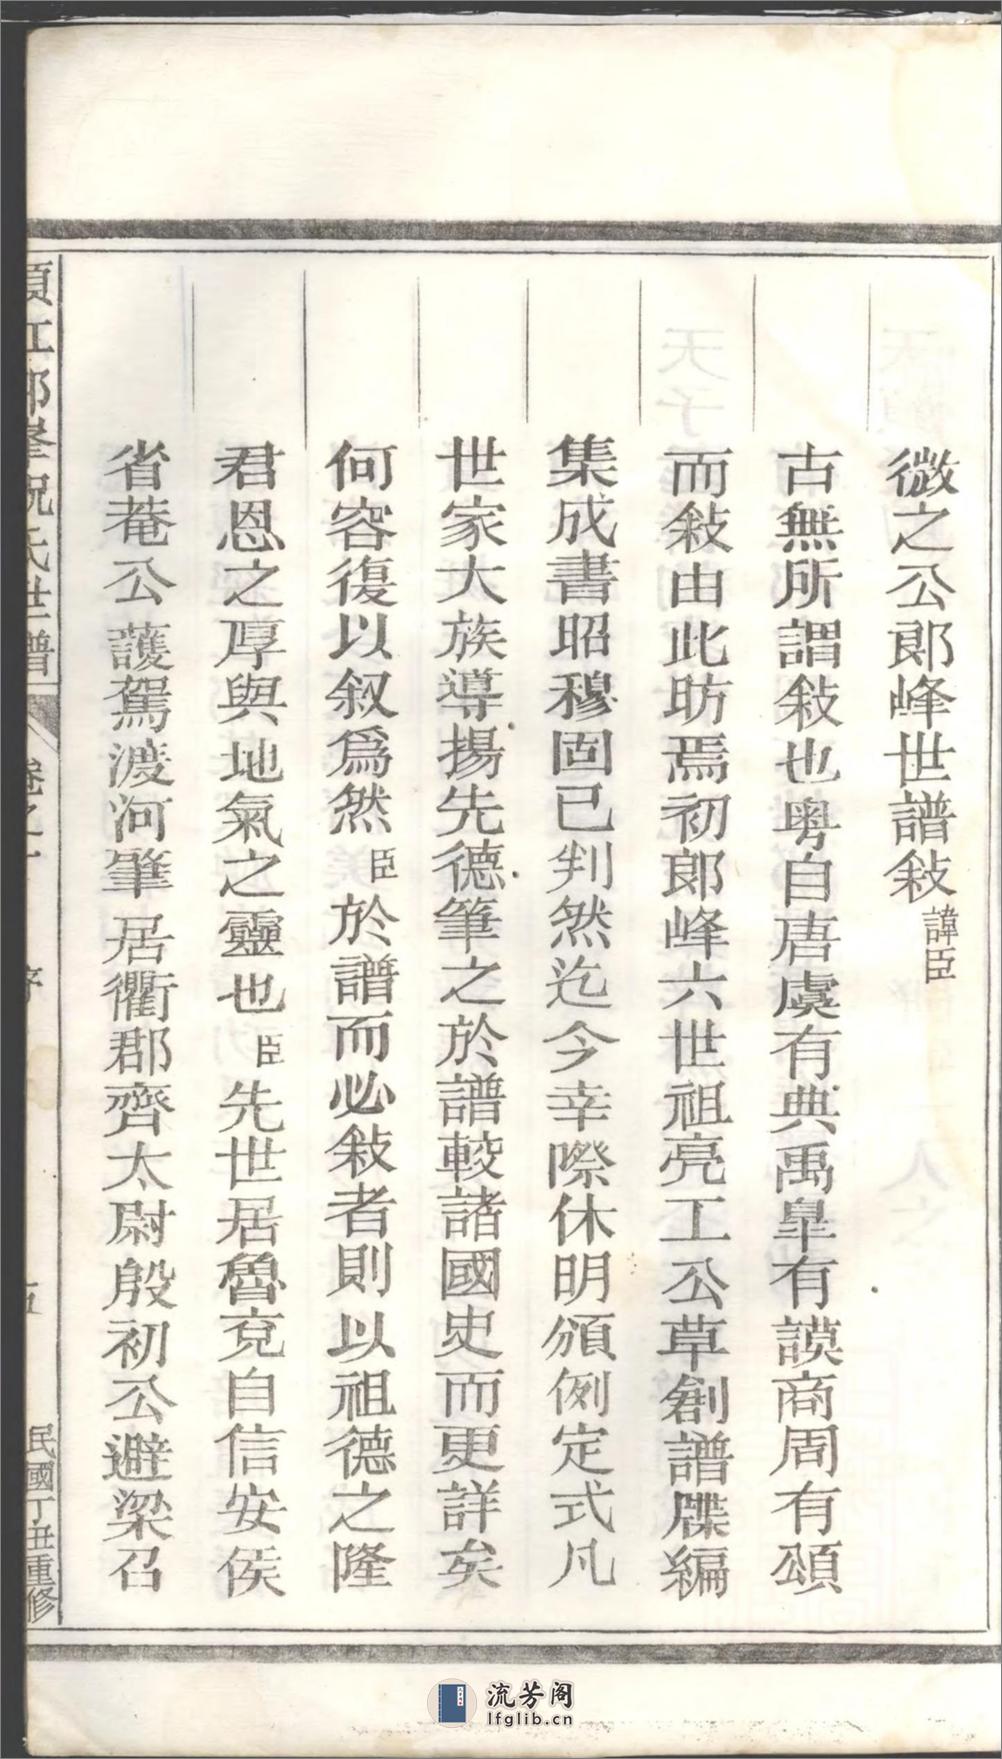 微之公郎峰世譜敍諱臣
古無所謂敍也粵自唐虞有典禹臯有謨商周有頌
而敍由此昉焉初郎峰六世祖亮工公草創譜牒編
集成書昭穆固已判然迄今幸際休明頒例定式凡
世家大族導揚先德筆之於譜較諸國史而更詳矣
何容復以叙爲然臣於譜而必敍者則以祖德之隆
君恩之厚與地氣之靈也臣先世居魯兗自信安侯
省菴公護駕渡河肇居衢郡齊太尉殷初公避梁召
須江郎峯祝氏世譜 卷之一 序 五 民國丁丑重修
流芳阁
lfglib.cn